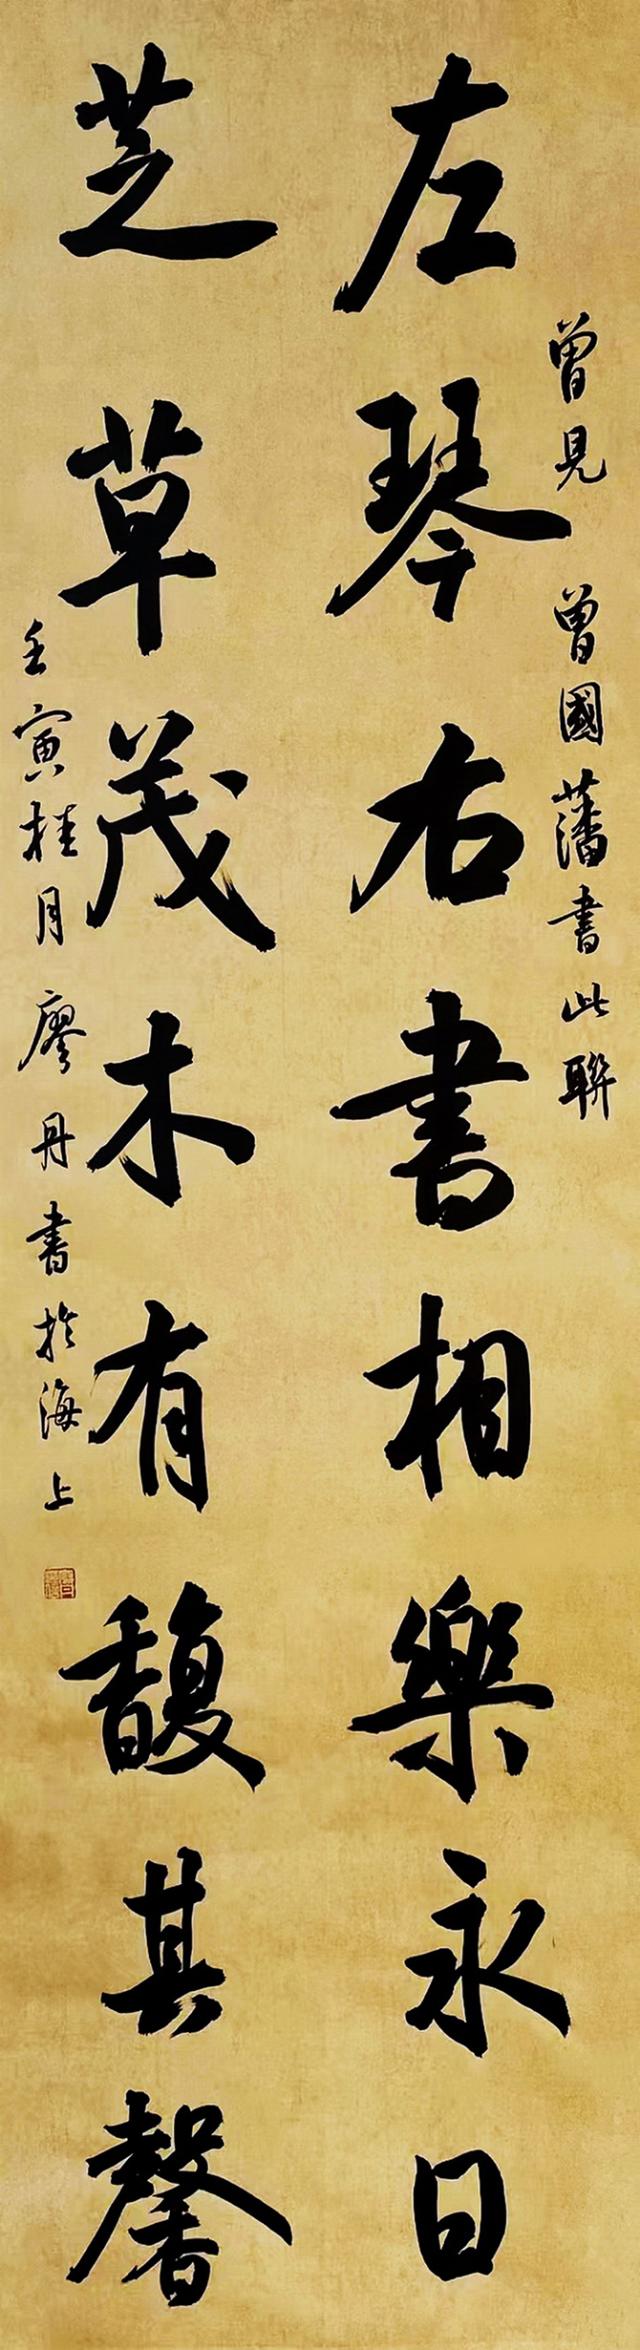 曾見曾國藩書此聯
左琴右書相樂永日
芝草茂木有馥其馨
壬寅桂月廖丹書於海上